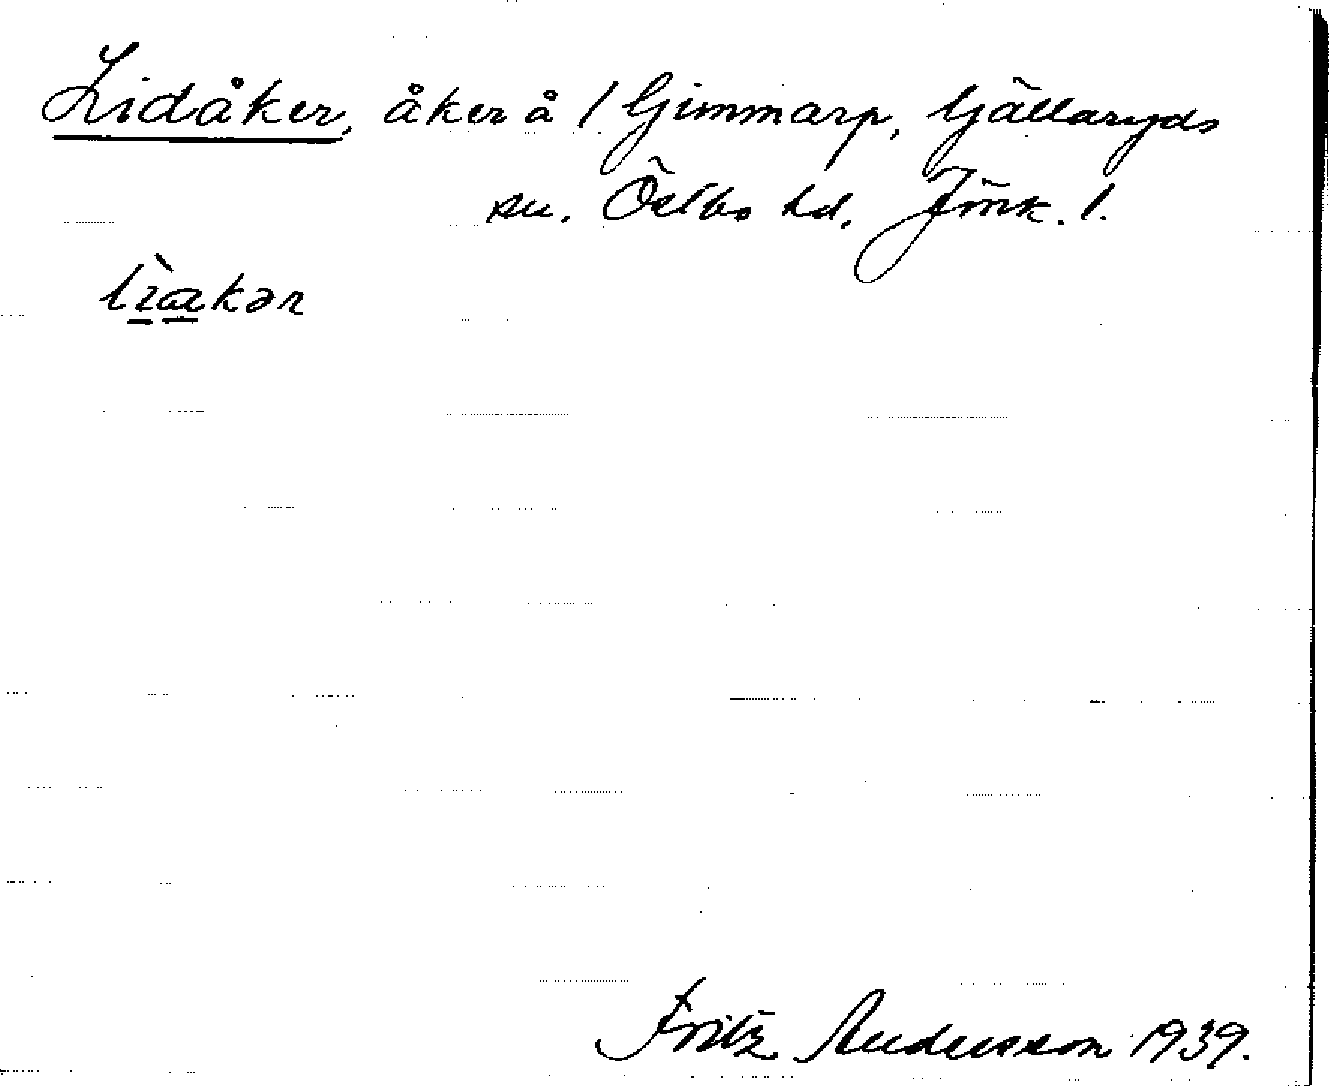 Lidåker, åker å 1 Gimmarp, Gällaryds
sn. Östbo hd. Jönk. l.
Fritz Andersson 1939.